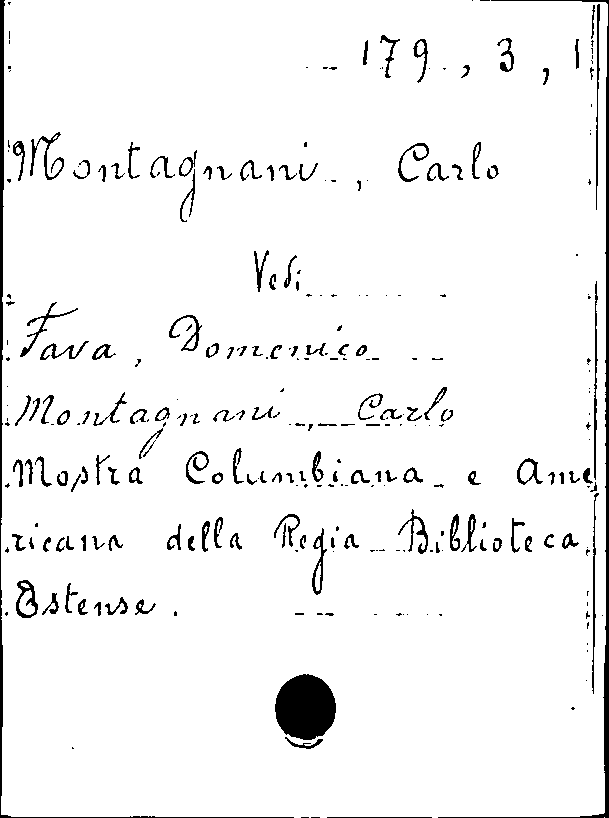 179, 3, 1
Montagnani, Carlo
Vedi
Fava, Domenico
Montagnani, Carlo
Mostra Columbiana e Ame
ricana della Regia Biblioteca
Estense.